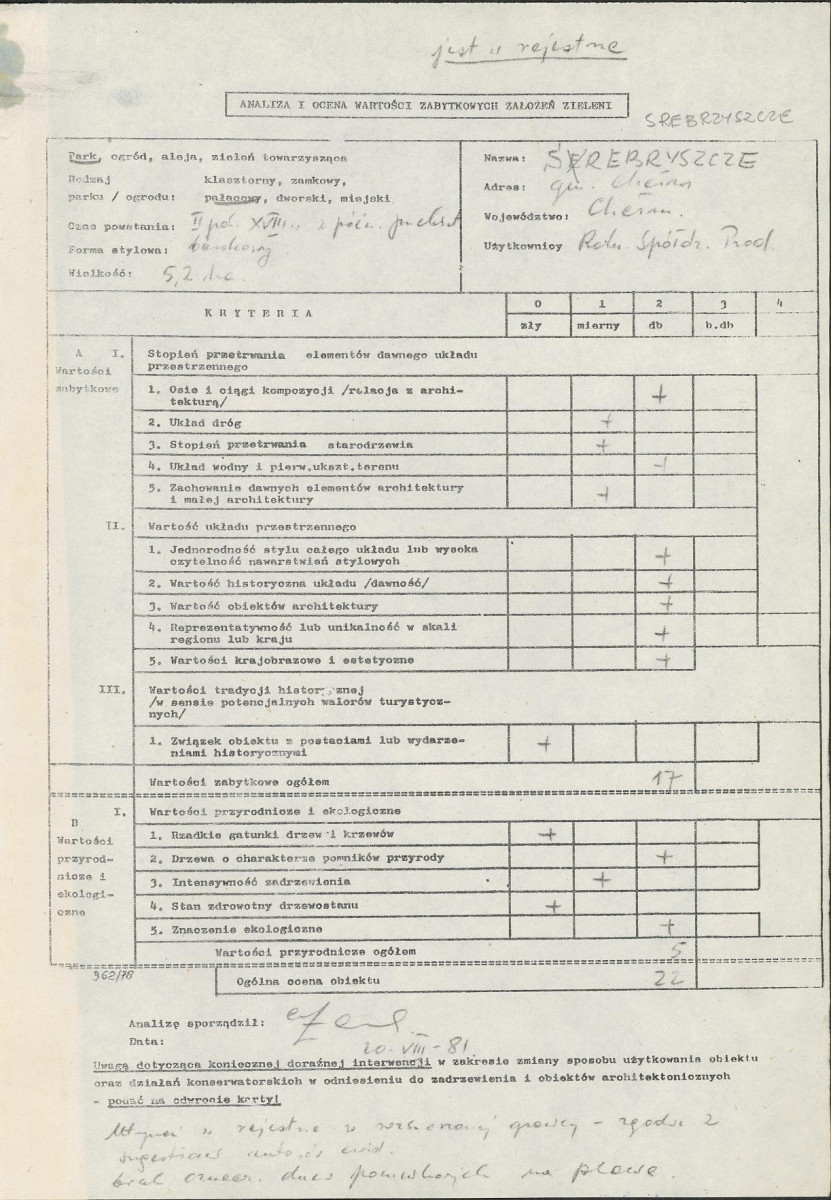 jest w rejestrze
ANALIZA I OCENA WARTOŚCI ZABYTKOWYCH ZAŁOŻEŃ ZIELENI
SREBRZYSZCZE
Park, ogród, aleja, zieleń towarzysząca
Rodzaj klasztorny, zamkowy,
parku / ogrodu: pałacowy, dworski, miejski
Czas powstania: II poł. XVIII., z późn.
Forma stylowa: barokowy
Wielkość: 5,2 ha
Nazwa: SREBRYSZCZE
Adres: gm. Chełm
Województwo: Chełm.
Użytkownicy Roln. Spółdz. Prod.
KRYTERIA
0 1 2 3 4
zły mierny db b.db
A I. Stopień przetrwania elementów dawnego układu
Wartości przestrzennego
zabytkowe
1. Osie i ciągi kompozycji /relacja z archi-
tekturą/ +
2. Układ dróg +
3. Stopień przetrwania starodrzewia +
4. Układ wodny i pierw.ukszt.terenu +
5. Zachowanie dawnych elementów architektury
i małej architektury +
II. Wartość układu przestrzennego
1. Jednorodność stylu całego układu lub wysoka
czytelność nawarstwień stylowych +
2. Wartość historyczna układu /dawność/ +
3. Wartość obiektów architektury +
4. Reprezentatywność lub unikalność w skali
regionu lub kraju +
5. Wartości krajobrazowe i estetyczne +
III. Wartości tradycji historycznej
/w sensie potencjalnych walorów turystycz-
nych/
1. Związek obiektu z postaciami lub wydarze-
niami historycznymi +
Wartości zabytkowe ogółem 17
B I. Wartości przyrodnicze i ekologiczne
Wartości
przyrod-
nicze i
ekologi-
czne
1. Rzadkie gatunki drzew i krzewów +
2. Drzewa o charakterze pomników przyrody +
3. Intensywność zadrzewienia +
4. Stan zdrowotny drzewostanu +
5. Znaczenie ekologiczne +
Wartości przyrodnicze ogółem 5
962/78
Ogólna ocena obiektu 22
Analizę sporządził:
Data: 20-VIII-81
Uwagę dotyczącą koniecznej doraźnej interwencji w zakresie zmiany sposobu użytkowania obiektu
oraz działań konserwatorskich w odniesieniu do zadrzewienia i obiektów architektonicznych
- podać na odwrocie karty!
w rejestrze w granicy - zgodnie z
sugestiami autorów ewid.
brak oznacz. drzew pomnikowych na planie.